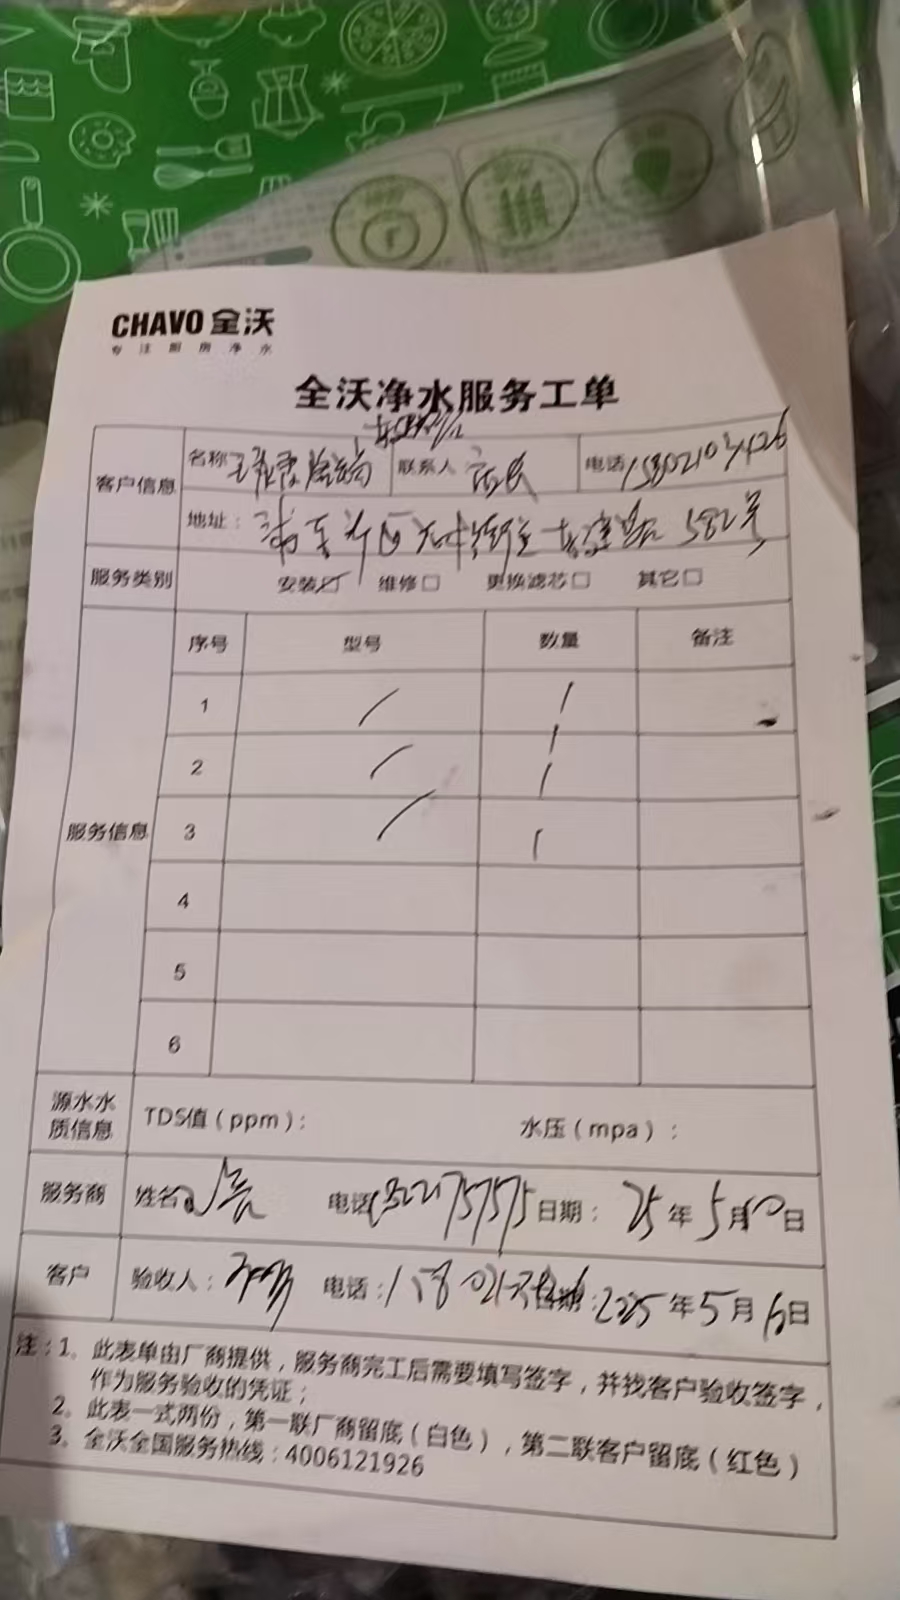 CHAVO 全沃
专注厨房净水
全沃净水服务工单
客户信息
名称
联系人
电话
地址：
582号
服务类别
安装☑ 维修□ 更换滤芯□ 其它□
服务信息
序号 型号 数量 备注
1
2
3
4
5
6
源水水质信息
TDS值（ppm）： 水压（mpa）：
服务商
姓名 电话 日期： 25年5月10日
客户
验收人： 电话： 日期：2025年5月10日
注：1、此表单由厂商提供，服务商完工后需要填写签字，并找客户验收签字，
作为服务验收的凭证；
2、此表一式两份，第一联厂商留底（白色），第二联客户留底（红色）
3、全沃全国服务热线：4006121926